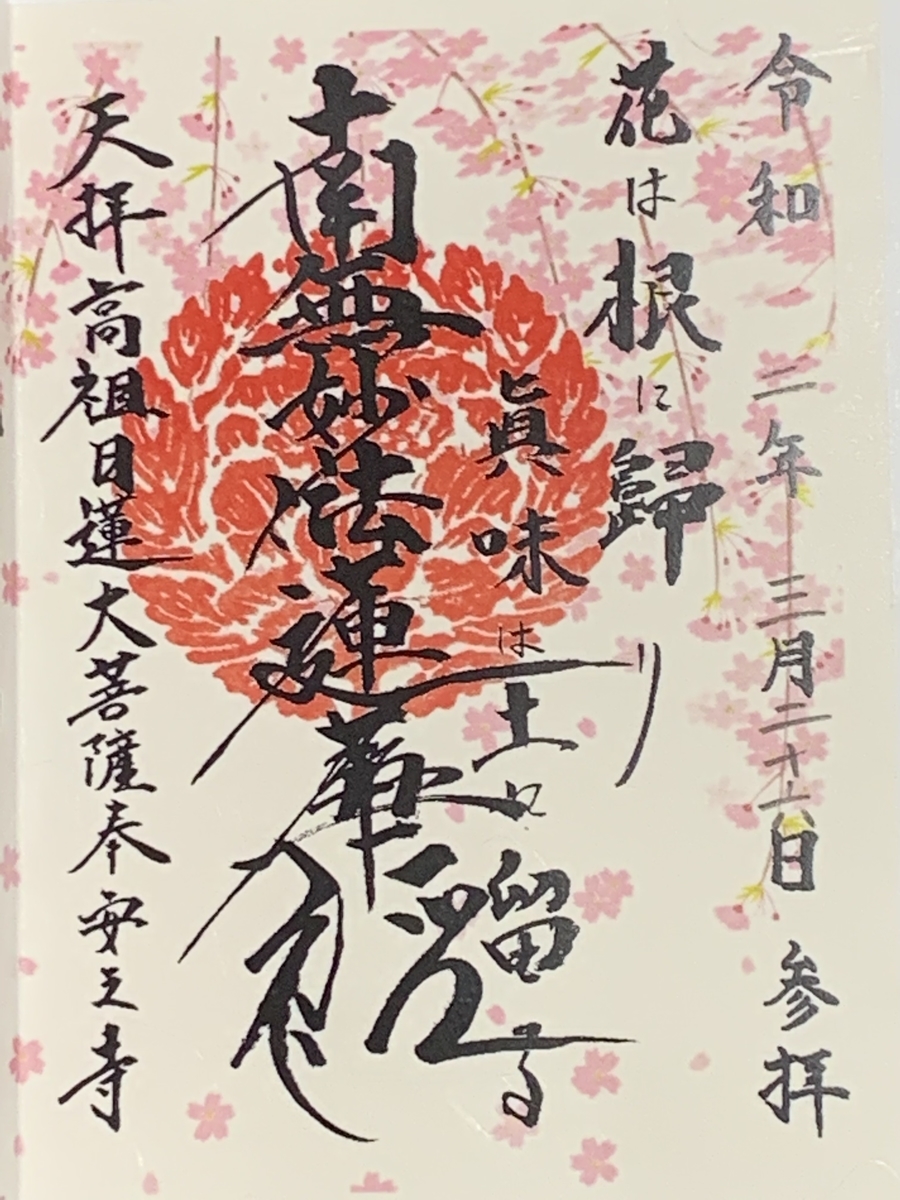 令和二年三月二十六日 参拝
花は根に歸り
眞味は土に留る
南無妙法蓮華経
天拝高祖日蓮大菩薩奉安之寺